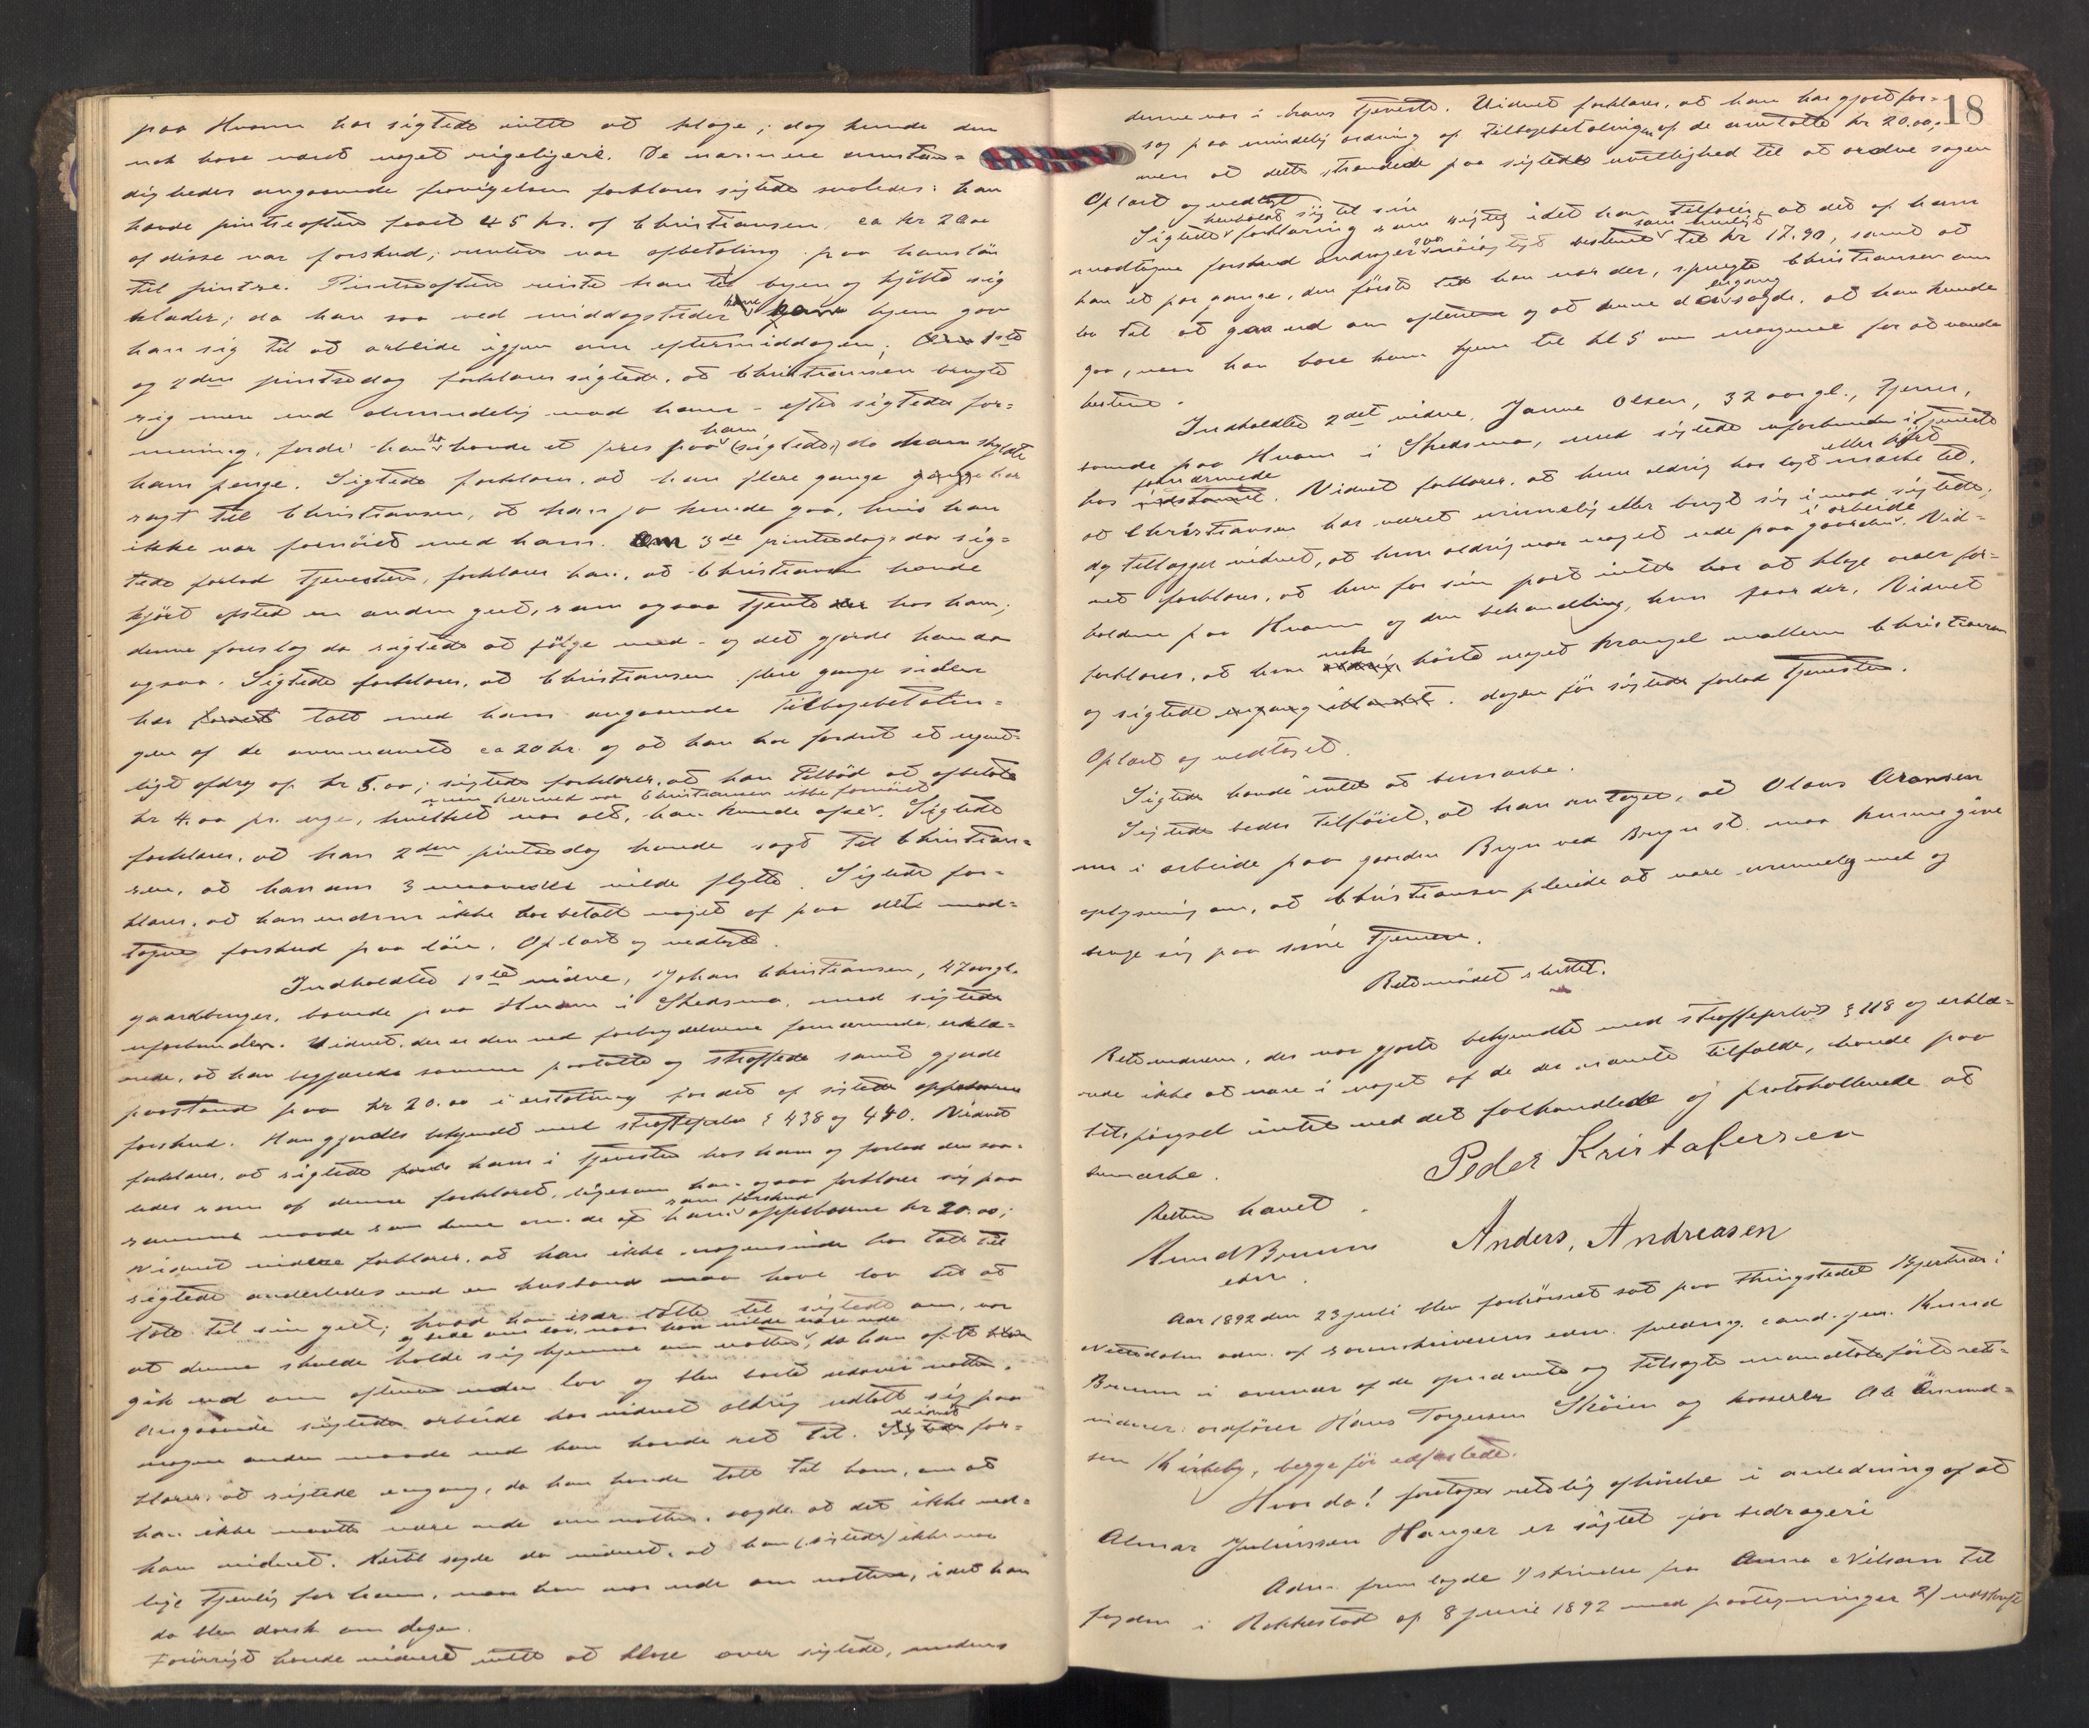 paa Hvam har sigtede intet at klage; dog kunde den
nok have været noget rigeligere. De nærmere omstæn=
digheder angaaende fravigelsen forklarer sigtede saaledes: han
havde pintseaften faaet 45 kr. af Christiansen, ca kr 20.00
af disse var forskud; resten var afbetaling paa hans løn
til pintse. Pintseaften reiste han til byen og kjøbte sig
klæder; da han saa ved middagstider kom hjem gav
han sig til at arbeide igjen om eftermiddagen; 1ste
og 2den pintsedag forklarer sigtede, at Christiansen brugte
sig mere end almindelig mod ham - efter sigtedes for=
mening, fordi han da havde et pres paa ham (sigtede), da han skyldte
ham penge. Sigtede forklarer, at han flere gange har
sagt til Christiansen, at han jo kunde gaa, hvis han
ikke var fornøiet med ham. Om 3de pintsedag, da sig=
tede forlod tjenesten, forklarer han, at Christiansen havde
kjørt afsted en anden gut, som ogsaa tjente hos ham;
denne foreslog da sigtede at følge med - og det gjorde han da
ogsaa. Sigtede forklarer, at Christiansen flere gange siden
har talt med ham angaaende tilbagebetalin=
gen af de ovennævnte ca 20 kr. og at han har fordret et ugent=
ligt afdrag af kr 5.00; sigtede forklarer, at han tilbød at afbetale
men hermed var Christiansen ikke fornøiet
kr 4.00 pr. uge, hvilket var alt, han kunde afse. Sigtede
forklarer, at han 2den pintsedag havde sagt til Christian=
sen, at han om 3 maaneder vilde flytte. Sigtede for=
klarer, at han endnu ikke har betalt noget af paa dette mod=
tagne forskud paa løn. Oplæst og vedtaget.
Indkaldtes 1ste vidne, Johan Christiansen, 47 aar gl.
gaardbruger, boende paa Hvam i Skedsmo, med sigtede
uforbunden. Vidnet, der er den ved forbrydelsen fornærmede, erklæ=
rede, at han begjærede samme paatalt og straffet samt gjorde
paastand paa kr 20.00 i erstatning for det af sigtede oppebaarne
forskud. Han gjordes bekjendt med straffeprlov § 438 og 440. Vidnet
forklarer, at sigtede kom i tjeneste hos ham og forlod den saa=
ledes som af denne forklaret, ligesom han ogsaa forklarer sig paa
samme maade som denne om de af ham som forskud oppebaarne kr 20.00;
Vidnet videre forklarer, at han ikke nogensinde har talt til
sigtede anderledes end en husbond maa have lov til at
tale til sin gut; hvad han især talte til sigtede om, var
og bede om lov, naar han vilde være ude
at denne skulde holde sig hjemme om natten, da han ofte
gik ud om aftenen uden lov og blev borte udover natten.
Angaaende sigtedes arbeide har vidnet aldrig udtalt sig paa
nogen anden maade end han havde ret til. Vidnet for=
klarer, at sigtede engang, da han havde talt til ham, om at
han ikke maatte være ude om natten, sagde, at det ikke ved=
kom vidnet. Hertil sagde da vidnet, at han (sigtede) ikke var
lige tjenlig for ham, naar han var ude om natten, idet han
da blev dorsk om dagen.
Forøvrigt havde vidnet intet at klage over sigtede, medens
18
denne var i hans tjeneste. Vidnet forklarer, at han har gjort for=
søg paa mindelig ordning af tilbagebetalingen af de omtalte kr 20.00,
men at dette strandede paa sigtedes uvillighed til at ordne sagen
Oplæst og vedtaget
henholdt sig til sin
Sigtede forklaring som rigtig idet han tilføier, at det af ham
modtagne forskud androg nøiagtigt bestemt til kr 17.90, samt at
han et par gange, den første tid han var der, spurgte Christiansen om
lov til at gaa ud om aftenen og at denne da engang sagde, at han kunde
gaa, men han bare kom hjem til kl 5 om morgenen for at vande
hestene.
Indkaldtes 2det vidne, Janne Olsen, 32 aar gl., tjener,
boende paa Hvam i Skedsmo, med sigtede uforbunden i tjeneste
hos fornærmede. Vidnet forklarer, at hun aldrig har lagt mærke til eller hørt
at Christiansen har været urimelig eller brugt sig imod sigtede;
dog tillægger vidnet, at hun aldrig var noget ude paa gaarden i arbeide. Vid=
net forklarer, at hun for sin part intet har at klage over for=
holdene paa Hvam og den behandling, hun faar der. Vidnet
forklarer, at hun nok hørte noget krangel mellem Christiansen
og sigtede dagen før sigtede forlod tjenesten.
Oplæst og vedtaget.
Sigtede havde intet at bemærke.
Sigtede bedes tilføiet, at han antager, at Olaus Aronsen
nu i arbeide paa gaarden Bryn ved Bryn st. maa kunne give
oplysning om, at Christiansen pleiede at være urimelig med og
bruge sig paa sine tjenere.
Retsmødet sluttet.
Retsvidnerne, der var gjorte bekjendte med straffeprlovs § 118 og erklæ=
rede ikke at være i noget af de der nævnte tilfælde, havde paa
tilspørgsel intet ved det forhandlede og protokollerede at
bemærke.
Peder Kristofersen
Retten hævet.
Knud Bruun
edsv.
Anders, Andreasen
Aar 1892 den 23 juli blev forhørsret sat paa thingstedet Bjerknæs i
Nittedalen adm. af sorenskriverens edsv. fuldmg. cand. jur. Knud
Bruun i overvær af de opnævnte og tilsagte mandtalsførte ret=
vidner: ordfører Hans Torgersen Skøien og kasserer Ole Amund=
sen Kirkeby, begge før edfæstede.
Hvor da! foretoges retslig afhørelse i anledning af at
Almar Juliussen Hauger er sigtet for bedrageri
Adm. fremlagde 1) skrivelse fra Anna Nilsen til
fogden i Rakkestad af 8 juni 1892 med paategninger 2) udskrift